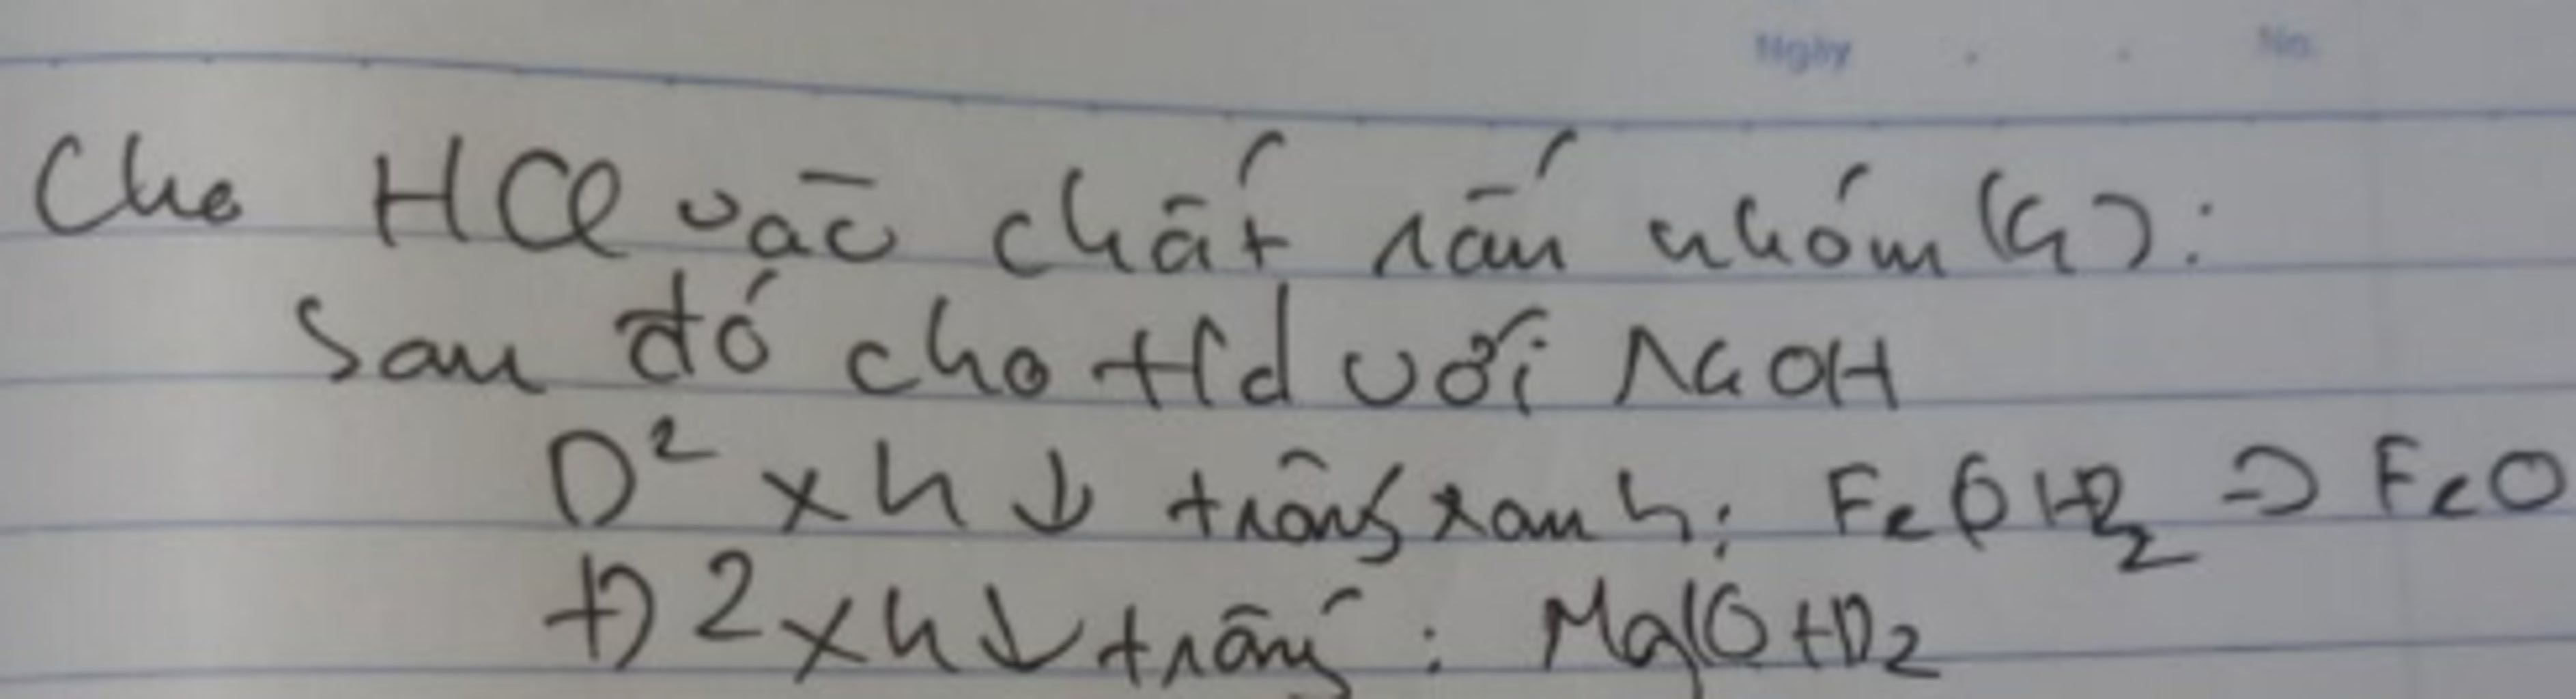 Ngày No.
Cho HCl vào chất rắn nhóm (4):
Sau đó cho t/d với NaOH
D² xh ↓ trắng xanh: Fe(OH)₂ => FeO
D² xh ↓ trắng: Mg(OH)₂